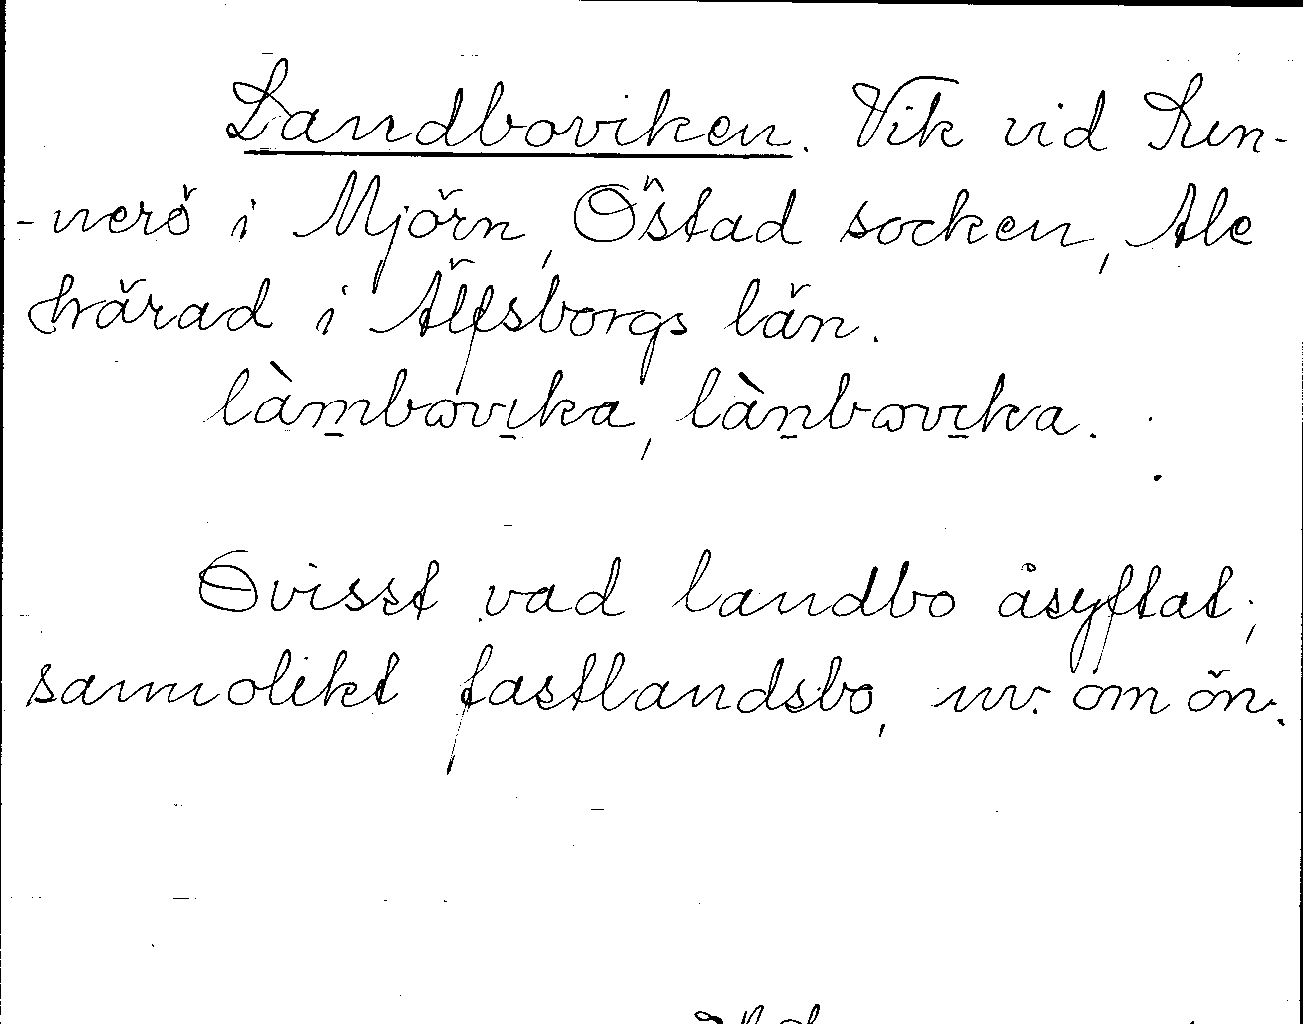 Landboviken. Vik vid Kun-
-nerö i Mjörn, Östad socken, Ale
härad i Älfsborgs län.
làmbovika, lànbovika.
Ovisst vad landbo åsyftat;
sannolikt fastlandsbo, uv. om ön.